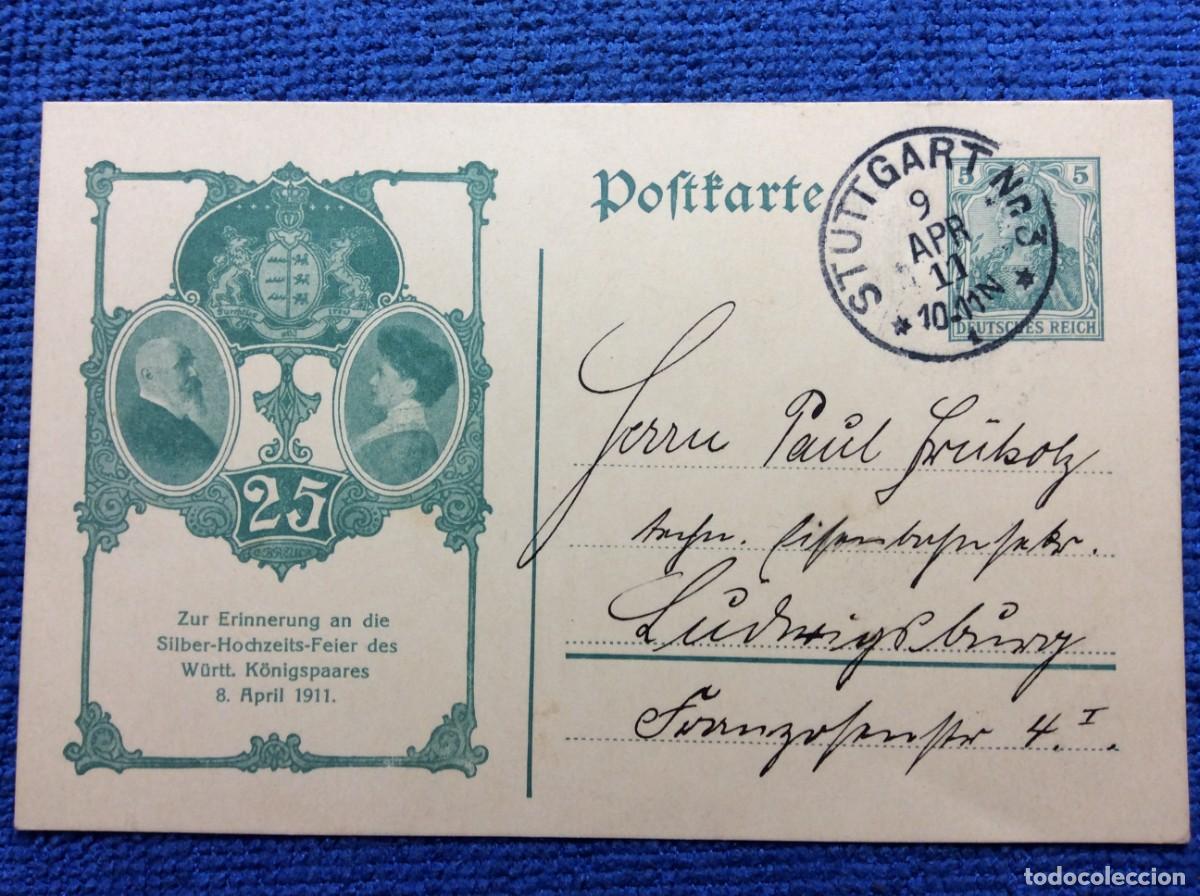 Postkarte
STUTTGART Nr. 3
9
APR
11
10-11N
5 5
DEUTSCHES REICH
Furchtlos und trew
25
Zur Erinnerung an die
Silber-Hochzeits-Feier des
Württ. Königspaares
8. April 1911.
Herrn Paul Früholz
techn. Eisenbahnsekr.
Ludwigsburg
Franzosenstr 4. I.
todocoleccion